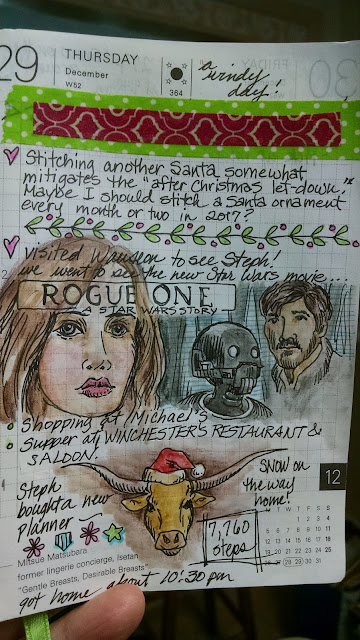 29 THURSDAY
December
W52
364
a windy day!
FRIDAY
30
Stitching another Santa somewhat
mitigates the "after Christmas let-down."
Maybe I should stitch a Santa ornament
every month or two in 2017?
Visited Wauseon to see Steph!
we went to see the new Star Wars movie...
ROGUE ONE
A STAR WARS STORY
Shopping at Michael's
Supper at WINCHESTER'S RESTAURANT &
SALOON.
Steph
bought a new
planner
SNOW on
the way
home!
12
7,760
steps
Mitsue Matsubara
former lingerie concierge, Isetan
"Gentle Breasts, Desirable Breasts"
got home about 10:30 pm